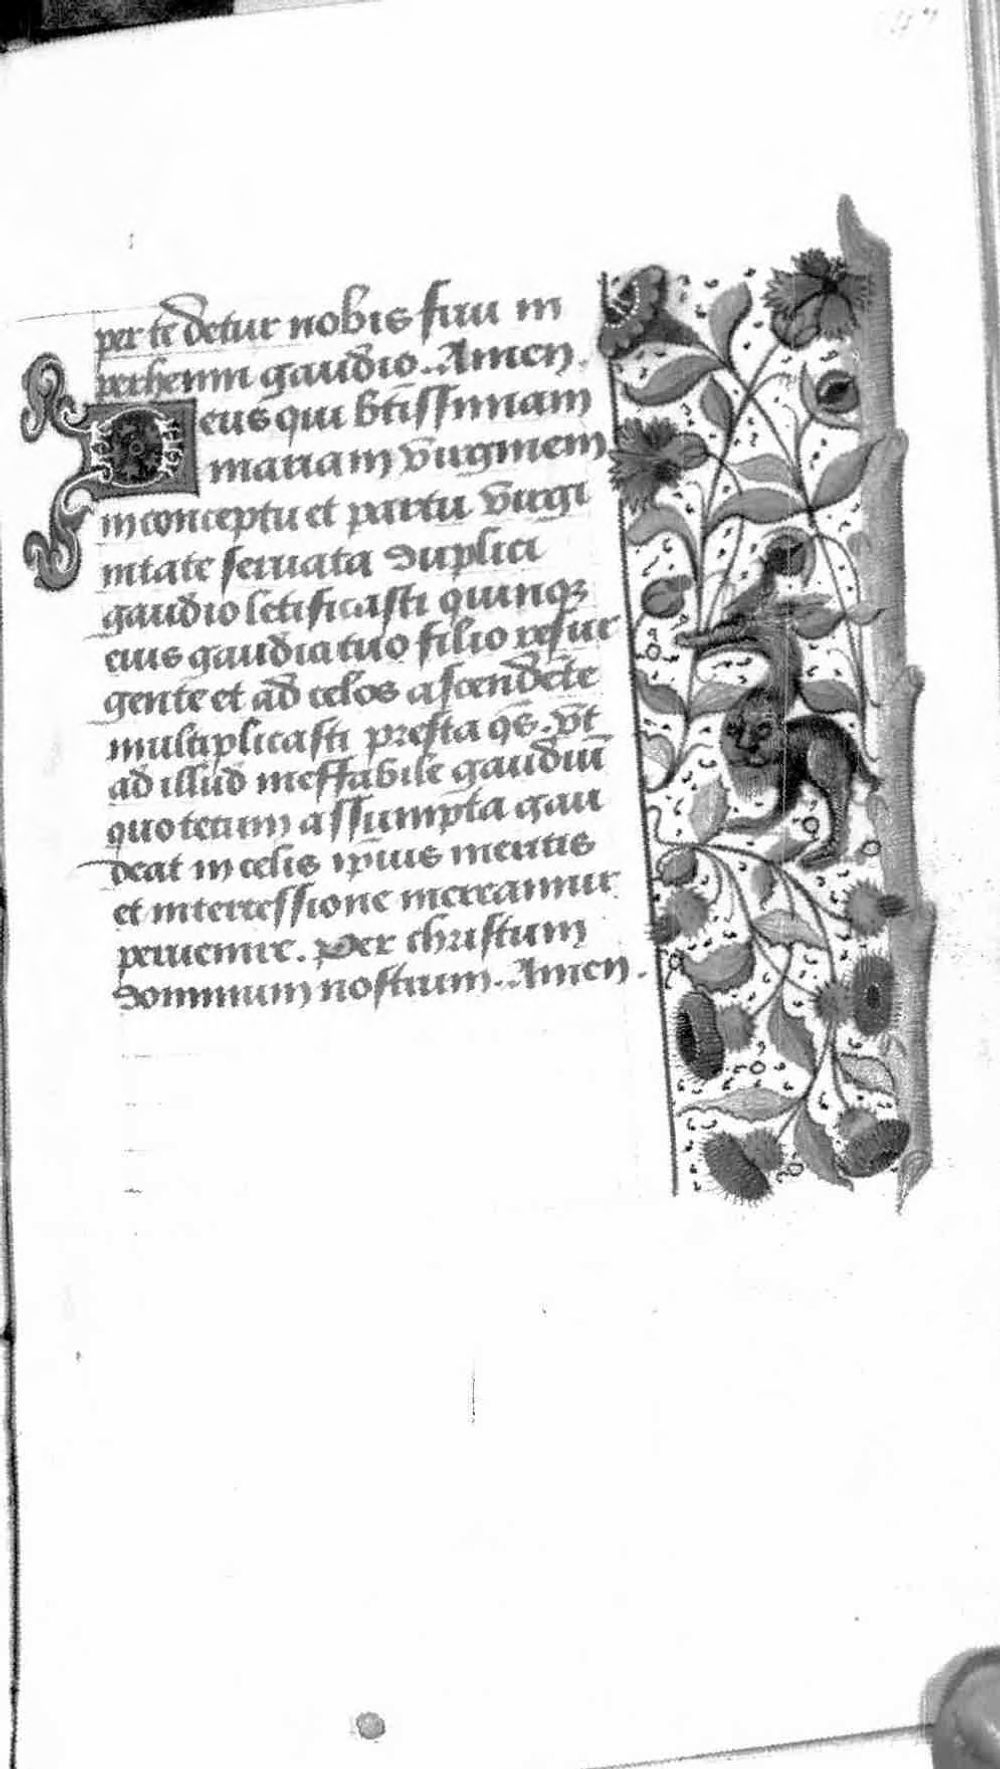 per te detur nobis frui in
perhenni gaudio. Amen.
Deus qui btīssimam
mariam virginem
in conceptu et partu virgi
nitate seruata duplici
gaudio letificasti quinqꝫ
eius gaudia tuo filio resur
gente et ad celos ascendēte
multiplicasti presta qs̄. vt
ad illud ineffabile gaudiū
quo tecum assumpta gau
deat in celis ip̄ius meritis
et intercessione mereamur
peruenire. Per christum
dominum nostrum. Amen.